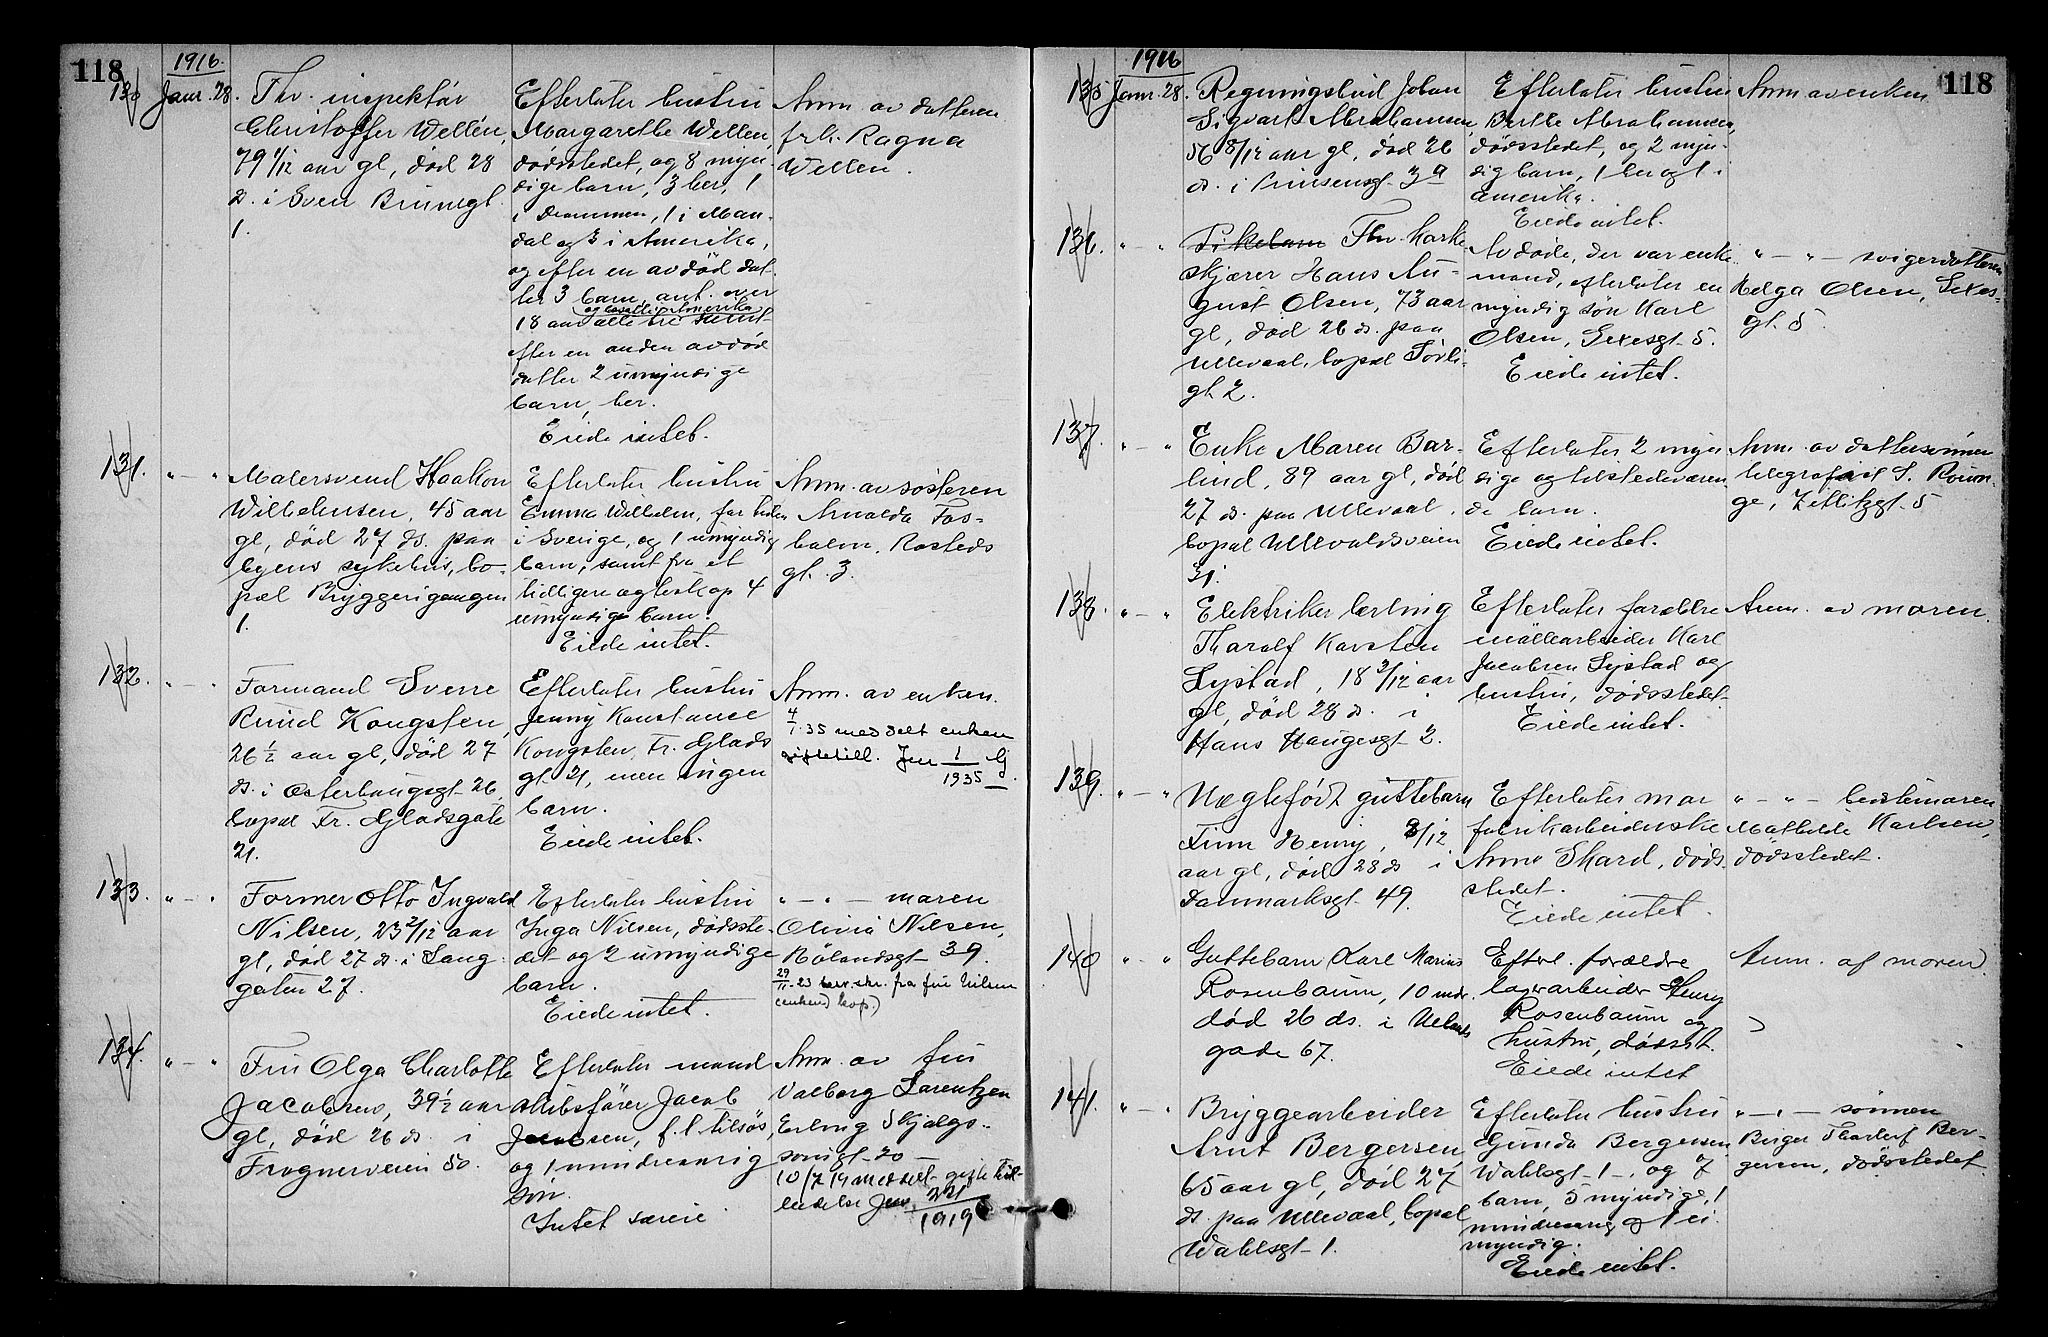 118
1916.
130
Janr. 28.
Fhv. inspektör
Christoffer Wellén,
79 1/12 aar gl, död 28
ds. i Sven Brunsgt.
1.
Efterlater hustru
Margarethe Wellen,
dödsstedet, og 8 myn-
dige barn, 3 her, 1
i Drammen, 1 i Man-
dal og 3 i Amerika,
og efter en avdöd dat-
ter 3 barn, ant. over
18 aar alle tre samt
efter en anden avdöd
datter 2 umyndige
barn, her.
Eiede intet.
Anm. av datteren
frk. Ragna
Wellen.
131.
" - "
Malersvend Haakon
Wilhelmsen, 45 aar
gl, död 27 ds. paa
byens sykehus, bo-
pæl Bryggerigangen
1.
Efterlater hustru
Emma Wilhelm, for tiden
i Sverige, og 1 umyndig
barn, samt fra et
tidligere egteskap 4
umyndige barn.
Eiede intet.
Anm. av sösteren
Arnalda Fos-
holm, Rosteds
gt. 3.
132.
" - "
Formand Sverre
Ruud Kongsten,
26 1/2 aar gl, död 27
ds. i Osterhaugsgt. 26,
bopæl Fr. Gladsgate
21.
Efterlater hustru
Jenny Konstance
Kongsten, Fr. Glads
gt. 21, men ingen
barn.
Eiede intet.
Anm. av enken.
4/1.35 meddelt enken
giftetill. Jnr 1/1935
133.
" - "
Former Otto Ingvald
Nilsen, 23 2/12 aar
gl, död 27 ds. i Lang-
gaten 27.
Efterlater hustru
Inga Nilsen, dödsste-
det og 2 umyndige
barn.
Eiede intet.
" - " - moren
Olivia Nilsen,
Rölandsgt 39.
29/11-23 skr. fra fru Nilsen
(enken) kop.)
134.
" - "
Fru Olga Charlotte
Jacobsen, 39 1/2 aar
gl, död 26 ds. i
Frognerveien 50.
Efterlater mand
skibsförer Jacob
Jacobsen, f. t. tilsös,
og 1 mindreaarig
sön.
Intet særeie.
Anm. av fru
Valborg Lorentzen
Erling Skjalgs-
sonsgt. 20 -
10/7 19 meddelt gifte til-
ladelse Jnr. 221/1919
118
1916
135
Janr. 28.
Regningsbud Johan
Sigvart Abrahamsen,
56 8/12 aar gl, död 26
ds. i Prinsensgt. 3a
Efterlater hustru
Berthe Abrahamsen,
dödsstedet, og 2 myn-
dig barn, 1 her og 1 i
Amerika.
Eiede intet.
Anm av enken
136.
" - "
Pikebarn Fhv. kork-
skjærer Hans Au-
gust Olsen, 73 aar
gl, död 26 ds. paa
Ullevaal, bopæl Sörli-
gt. 2.
Avdöde, der var enke-
mand, efterlater en
myndig sön Karl
Olsen, Sexesgt. 5.
Eiede intet.
" - " - svigerdatteren
Helga Olsen, Sexes-
gt. 5.
137.
" - "
Enke Maren Bar-
lind, 89 aar gl, död
27 ds. paa Ullevaal,
bopæl Ullevaldsveien
31.
Efterlater 2 myn-
dige og tilstedeværen-
de barn.
Eiede intet.
Anm. av dattersönnen
telegrafist S.
ge, Zetlitzgt. 5
138.
" - "
Elektriker lærling
Tharalf Karsten
Systad, 18 3/12 aar
gl, död 28 ds. i
Hans Haugesgt. 2.
Efterlater forældre
möllearbeider Karl
Jacobsen Systad og
hustru, dödsstedet.
Eiede intet.
Anm. av moren.
139.
" - "
Uægtefödt guttebarn
Finn Henry, 8/12
aar gl, död 28 ds i
Danmarksgt. 49.
Efterlater mor
fabrikarbeiderske
Anna Skard, döds-
stedet.
Eiede intet.
" - " - bestemoren
Mathilde Karlsen,
dödsstedet.
140
" - "
Guttebarn Karl Marius
Rosenbaum, 10 mdr.
död 26 ds. i Uelands
gade 67.
Efterl. forældre
lagerarbeider Henry
Rosenbaum og
hustru, dödsst.
Eiede intet
Anm. af moren.
141.
" - "
Bryggearbeider
Arnt Bergersen,
65 aar gl, död 27
ds. paa Ullevaal, bopæl
Wahlsgt. 1.
Efterlater hustru
Gunda Bergersen
Wahlsgt. 1 -, og 7
barn, 5 myndige, 1
mindreaarig og 1 u-
myndig.
Eiede intet.
" - " - sönnen
Birger Thorleif Ber-
gersen, dödsstedet